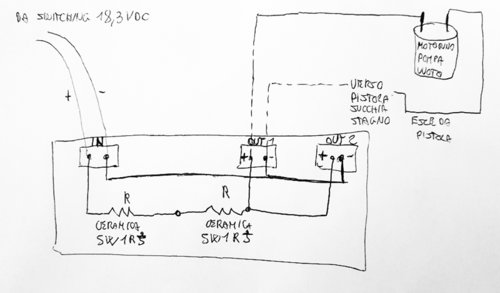 DA SWITCHING 18,3 VDC
+ -
MOTORINO
POMPA
VUOTO
VERSO
PISTOLA
SUCCHIA
STAGNO
ESCE DA
PISTOLA
IN
OUT 1
OUT 2
+ -
+ -
R
R
CERAMICA
5W/1R5
CERAMICA
5W/1R5